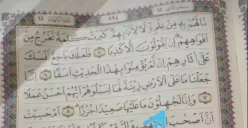 مَّا لَهُم بِهِۦ مِنْ عِلْمٍ وَلَا لِـَٔابَآئِهِمْ كَبُرَتْ كَلِمَةً تَخْرُجُ مِنْ
أَفْوَٰهِهِمْ إِن يَقُولُونَ إِلَّا كَذِبًا فَلَعَلَّكَ بَٰخِعٌ نَّفْسَكَ
عَلَىٰٓ ءَاثَٰرِهِمْ إِن لَّمْ يُؤْمِنُوا۟ بِهَٰذَا ٱلْحَدِيثِ أَسَفًا إِنَّا
جَعَلْنَا مَا عَلَى ٱلْأَرْضِ زِينَةً لَّهَا لِنَبْلُوَهُمْ أَيُّهُمْ أَحْسَنُ عَمَلًا
وَإِنَّا لَجَٰعِلُونَ مَا عَلَيْهَا صَعِيدًا جُرُزًا أَمْ حَسِبْتَ